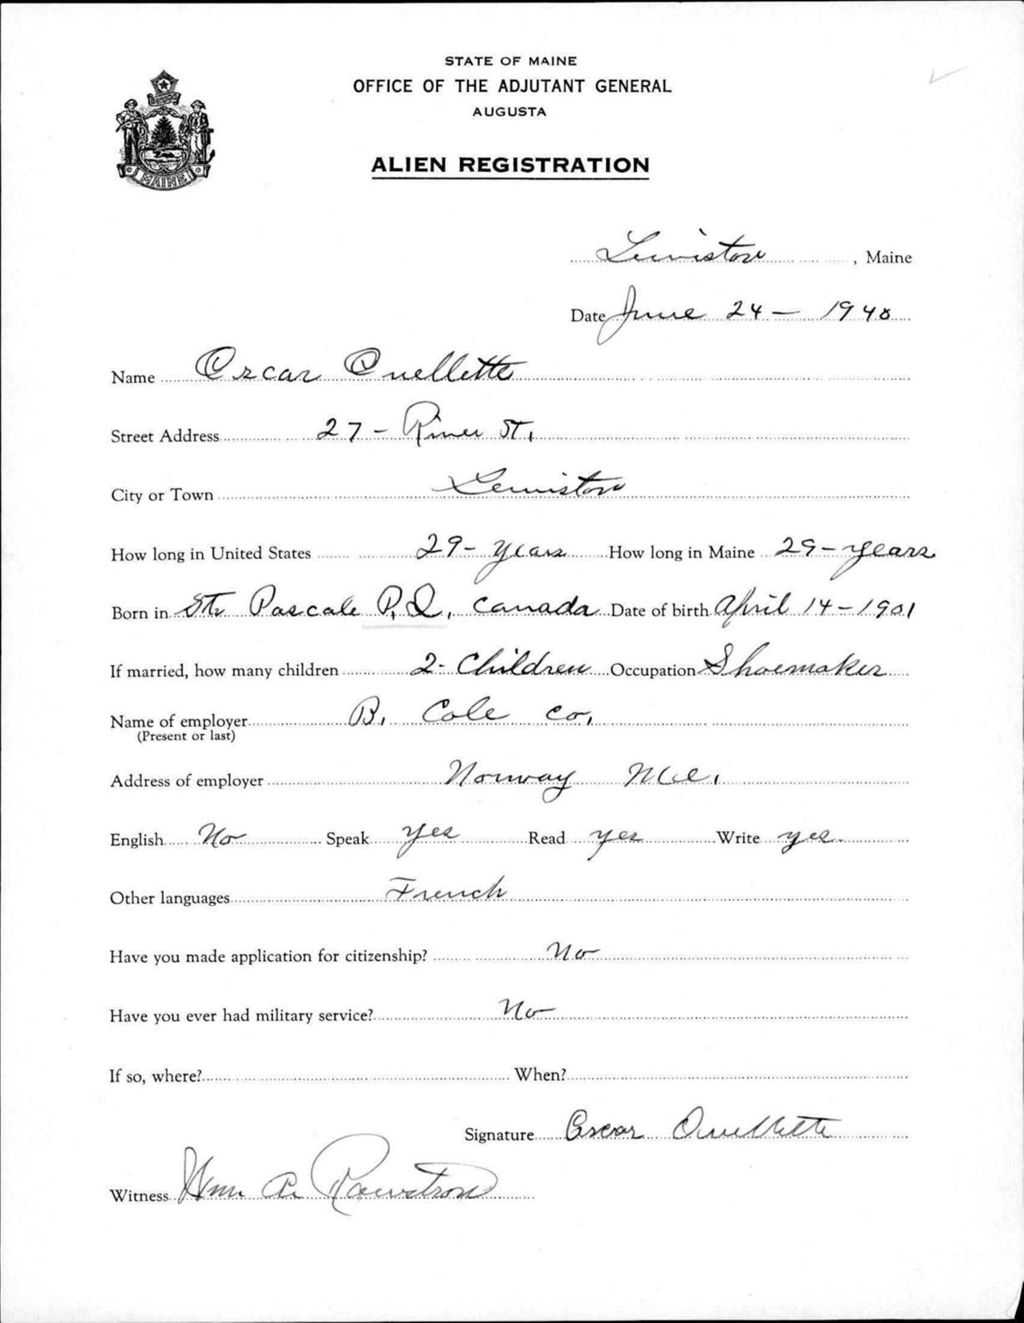 STATE OF MAINE
OFFICE OF THE ADJUTANT GENERAL
AUGUSTA
MAINE
ALIEN REGISTRATION
Lewiston, Maine
Date June 24 - 1940
Name Oscar Ouellette
Street Address 27 - River St.
City or Town Lewiston
How long in United States 29 - years How long in Maine 29 - years
Born in Ste Pascale P.Q. Canada Date of birth April 14 - 1901
If married, how many children 2 - Children Occupation Shoemaker
Name of employer B. Cole Co.
(Present or last)
Address of employer Norway Me.
English No Speak yes Read yes Write yes
Other languages French
Have you made application for citizenship? No
Have you ever had military service? No
If so, where? When?
Signature Oscar Ouellette
Witness Wm A. Rawstron